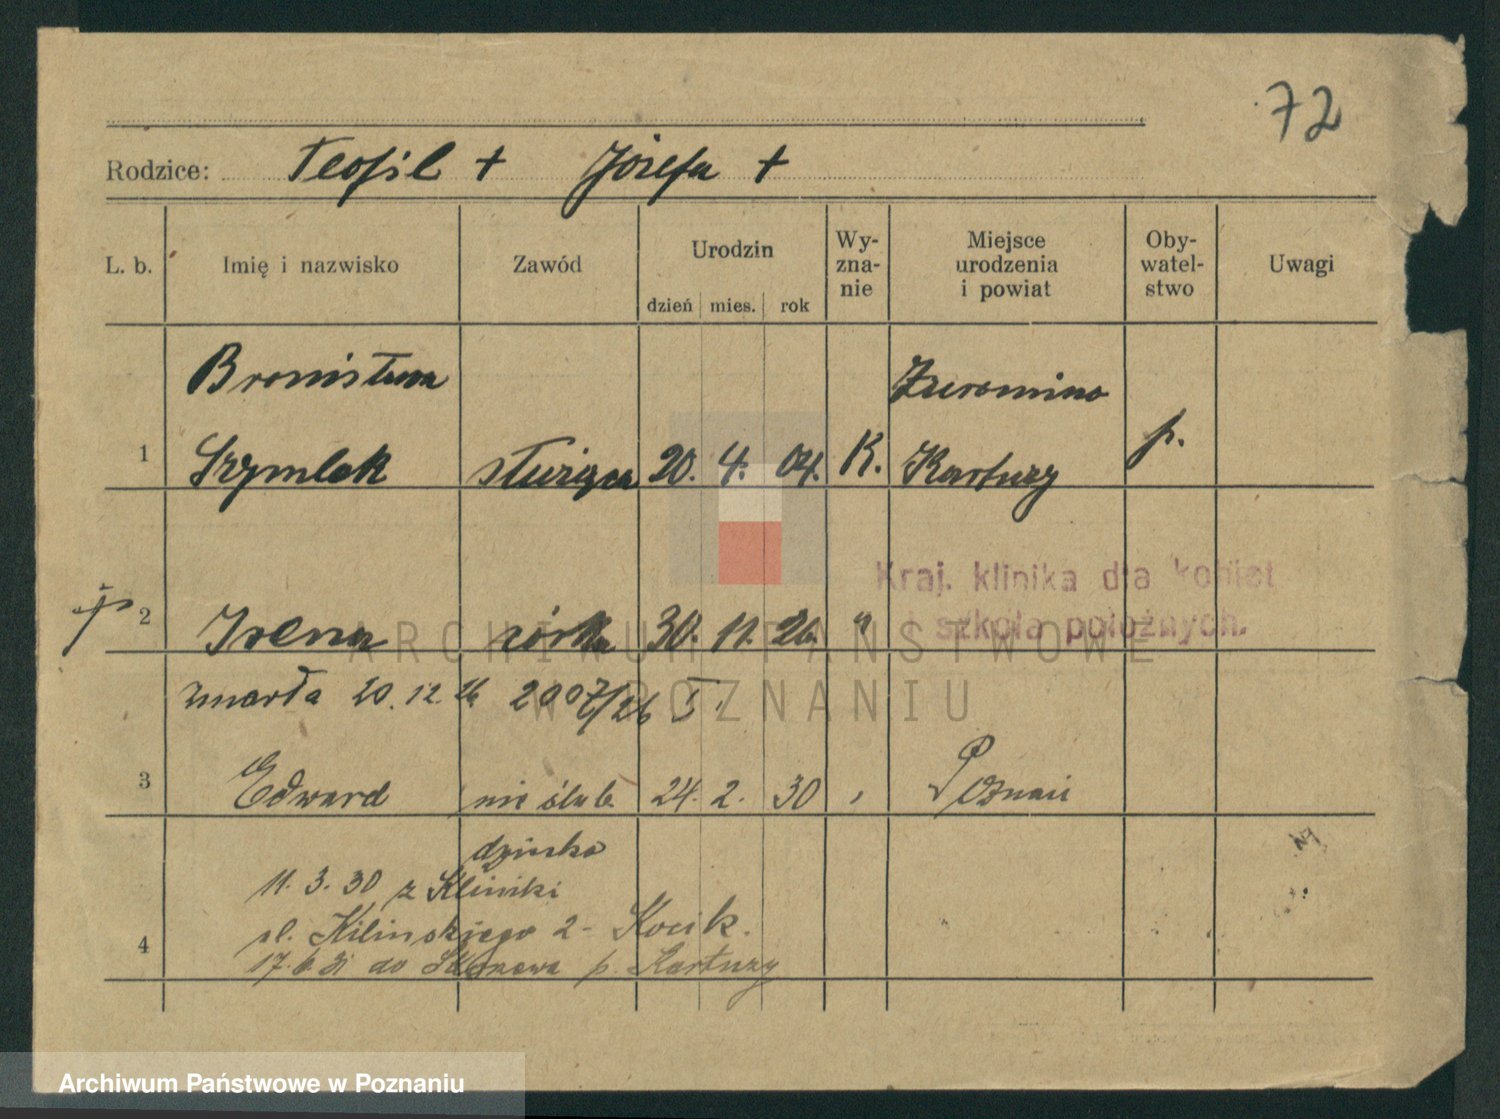 72
Rodzice: Teofil + Józefa +
L. b. Imię i nazwisko Zawód Urodzin dzień mies. rok Wy-zna-nie Miejsce urodzenia i powiat Oby-watel-stwo Uwagi
Bronisława Żuromino
1 Szymlek służąca 20. 4. 04. K. Kartuzy p.
Kraj. klinika dla kobiet
i szkoła położnych.
2 Irena córka 30. 11. 26. "
zmarła 20. 12. 26 2007/26 I.
3 Edward nieślub. 24. 2. 30 Poznań
dziecko
11. 3. 30 z Kliniki
pl. Kilinskiego 2 - Kocik.
4 17. 6. 31 do p. Kartuzy
ARCHIWUM PAŃSTWOWE
W POZNANIU
Archiwum Państwowe w Poznaniu